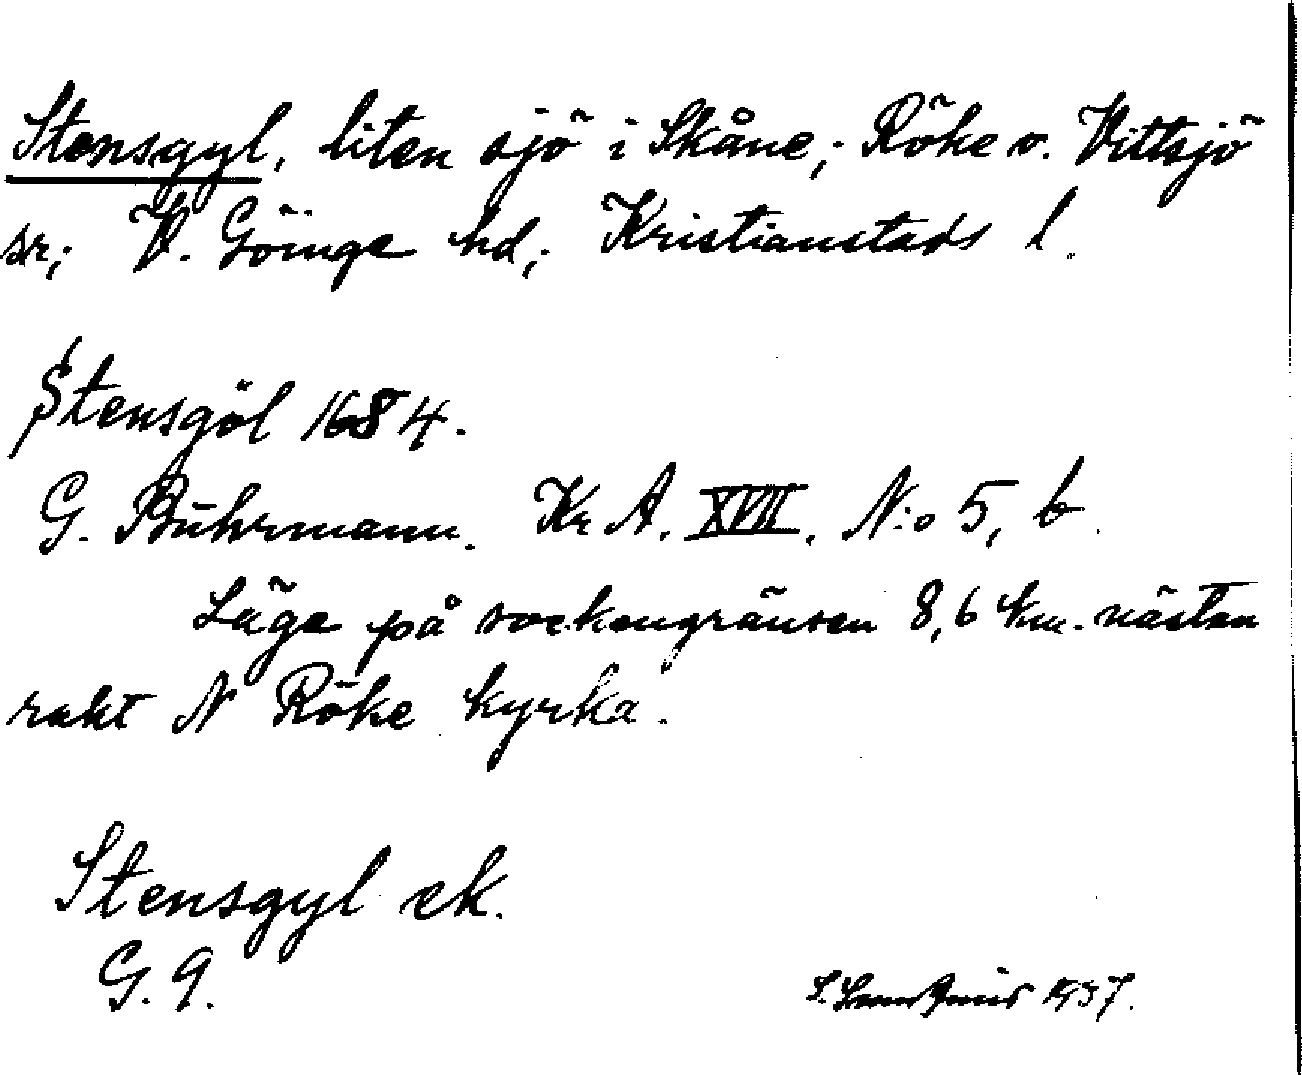 Stensgyl, liten sjö i Skåne; Röke o. Vittsjö
sr; V. Göinge hd; Kristianstads l.
Stensgöl 1684.
G. Buhrmann. Kr A. XVII. N:o 5, b.
Läge på sockengränsen 8,6 km. nästan
rakt N Röke kyrka.
Stensgyl ek.
G. 9.
1937.